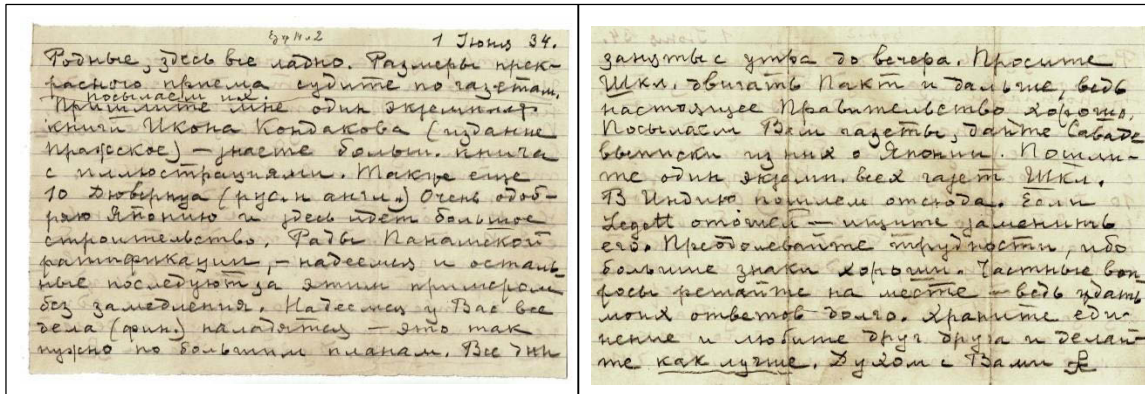 1 Июня 34.
Родные, здесь все ладно. Размеры прек-
расного приема судите по газетам.
посылаем их
Пришлите мне один экземпляр
книги Икона Кондакова (издание
пражское) — знаете больш. книга
с иллюстрациями. Также еще
10 Дювернуа (рус. и англ.) Очень одоб-
ряю Японию и здесь идет большое
строительство. Рады Панамской
ратификации, — надеемся и осталь-
ные последуют за этим примером
без замедления. Надеемся у Вас все
дела (фин.) наладятся — это так
нужно по большим планам. Все дни
заняты с утра до вечера. Просите
Шкл. двигать Пакт и дальше, ведь
настоящее Правительство хорошо.
Посылаем Вам газеты, дайте Саваде
выписки из них о Японии. Пошли-
те один экземп. всех газет Шкл.
В Индию пошлем отсюда. Если
Legett отошел — ищите заменить
его. Преодолевайте трудности, ибо
большие знаки хороши. Частные воп-
росы решайте на месте — ведь ждать
моих ответов долго. Храните еди-
нение и любите друг друга и делай-
те как лучше. Духом с Вами